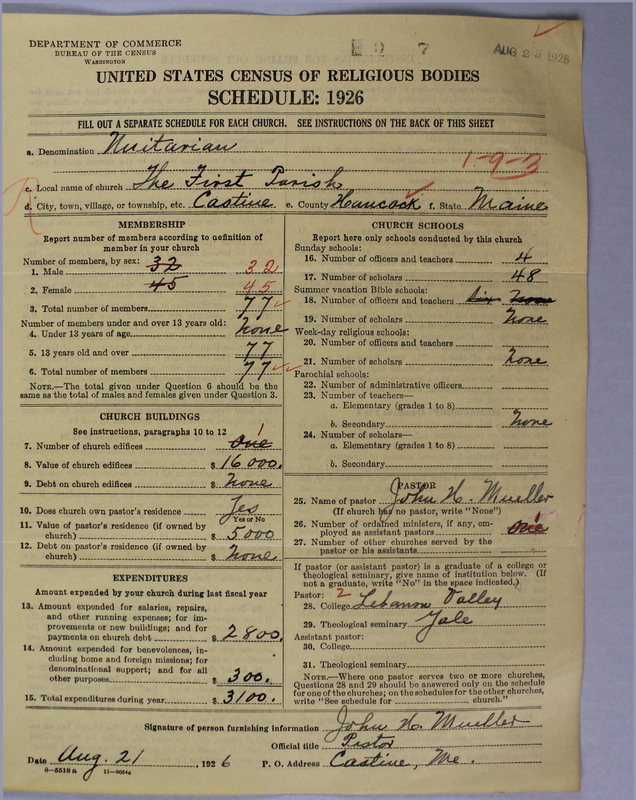 DEPARTMENT OF COMMERCE
BUREAU OF THE CENSUS
WASHINGTON
9 7
AUG 23 1926
UNITED STATES CENSUS OF RELIGIOUS BODIES
SCHEDULE: 1926
FILL OUT A SEPARATE SCHEDULE FOR EACH CHURCH. SEE INSTRUCTIONS ON THE BACK OF THIS SHEET
a. Denomination Unitarian
1-9-3
c. Local name of church The First Parish
d. City, town, village, or township, etc. Castine e. County Hancock f. State Maine
MEMBERSHIP
Report number of members according to definition of
member in your church
Number of members, by sex:
1. Male 32 32
2. Female 45 45
3. Total number of members 77
Number of members under and over 13 years old:
4. Under 13 years of age None
5. 13 years old and over 77
6. Total number of members 77
NOTE.—The total given under Question 6 should be the
same as the total of males and females given under Question 3.
CHURCH BUILDINGS
See instructions, paragraphs 10 to 12
7. Number of church edifices One 1
8. Value of church edifices $ 16000.
9. Debt on church edifices $ None
10. Does church own pastor's residence? Yes
Yes or No
11. Value of pastor's residence (if owned by
church) $ 5000
12. Debt on pastor's residence (if owned by
church) $ None
EXPENDITURES
Amount expended by your church during last fiscal year
13. Amount expended for salaries, repairs,
and other running expenses; for im-
provements or new buildings; and for
payments on church debt $ 2800.
14. Amount expended for benevolences, in-
cluding home and foreign missions; for
denominational support; and for all
other purposes $ 300.
15. Total expenditures during year $ 3100.
CHURCH SCHOOLS
Report here only schools conducted by this church
Sunday schools:
16. Number of officers and teachers 4
17. Number of scholars 48
Summer vacation Bible schools:
18. Number of officers and teachers None
19. Number of scholars None
Week-day religious schools:
20. Number of officers and teachers
21. Number of scholars None
Parochial schools:
22. Number of administrative officers
23. Number of teachers—
a. Elementary (grades 1 to 8)
b. Secondary None
24. Number of scholars—
a. Elementary (grades 1 to 8)
b. Secondary
PASTOR
25. Name of pastor John N. Mueller
(If church has no pastor, write "None")
26. Number of ordained ministers, if any, em-
ployed as assistant pastors One
27. Number of other churches served by the
pastor or his assistants
If pastor (or assistant pastor) is a graduate of a college or
theological seminary, give name of institution below. (If
not a graduate, write "No" in the space indicated.)
Pastor: 2
28. College Lebanon Valley
29. Theological seminary Yale
Assistant pastor:
30. College
31. Theological seminary
NOTE.—Where one pastor serves two or more churches,
Questions 28 and 29 should be answered only on the schedule
for one of the churches; on the schedules for the other churches,
write "See schedule for church."
Signature of person furnishing information John N. Mueller
Official title Pastor
Date Aug. 21, 1926 P. O. Address Castine, Me.
8—5518 a